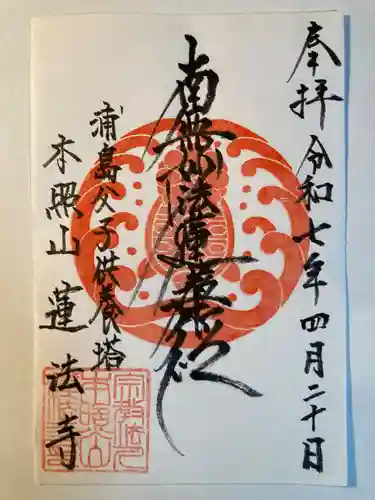 奉拝 令和七年四月二十日
南無妙法蓮華経
浦島父子供養塔
本照山 蓮法寺